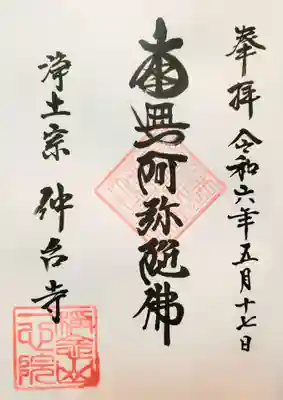 奉拝 令和六年五月十七日
南無阿弥陀佛
浄土宗 仲台寺